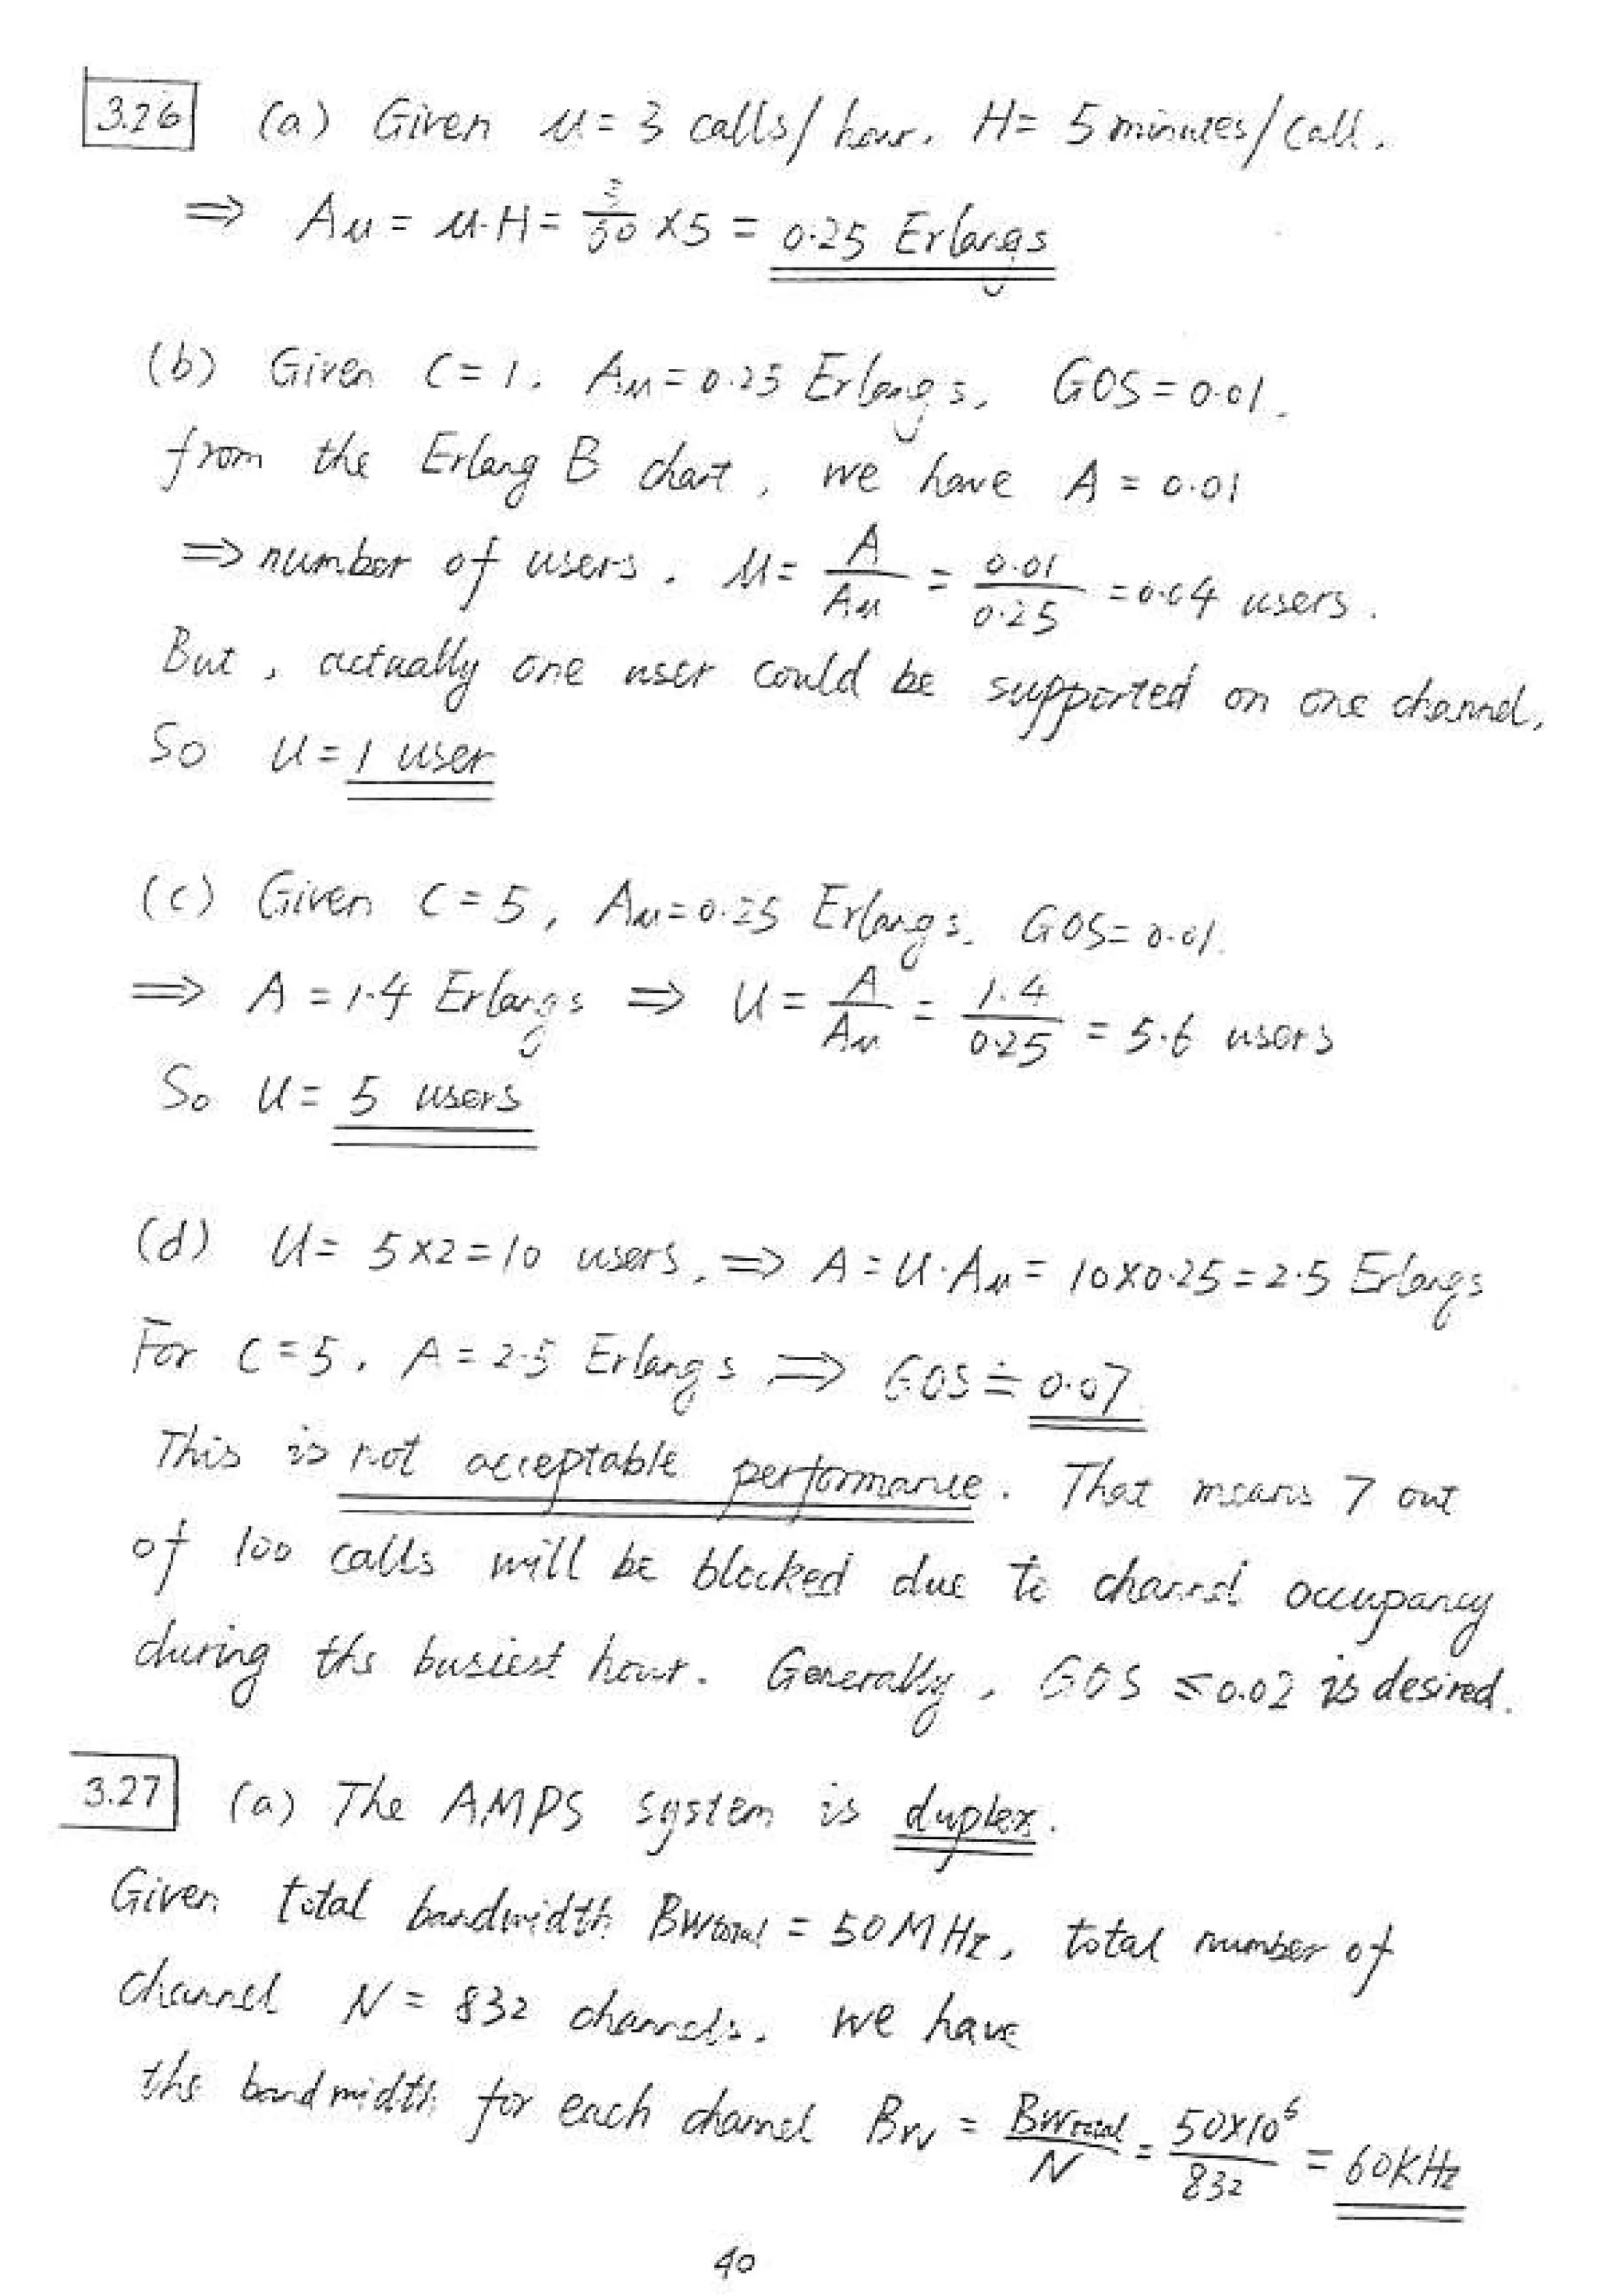 3.26 (a) Given μ = 3 calls/hour. H = 5 minutes/call.
⇒ Au = μ·H = 3/60 × 5 = 0.25 Erlangs
(b) Given C = 1, Au = 0.25 Erlangs, GOS = 0.01.
from the Erlang B chart, we have A = 0.01
⇒ number of users. U = A/Au = 0.01/0.25 = 0.04 users.
But, actually one user could be supported on one channel,
So U = 1 user
(c) Given C = 5, Au = 0.25 Erlangs. GOS = 0.01.
⇒ A = 1.4 Erlangs ⇒ U = A/Au = 1.4/0.25 = 5.6 users
So U = 5 users
(d) U = 5×2 = 10 users, ⇒ A = U·Au = 10×0.25 = 2.5 Erlangs
For C = 5, A = 2.5 Erlangs ⇒ GOS ≐ 0.07
This is not acceptable performance. That means 7 out
of 100 calls will be blocked due to channel occupancy
during the busiest hour. Generally, GOS ≤ 0.02 is desired.
3.27 (a) The AMPS system is duplex.
Given total bandwidth BWtotal = 50MHz, total number of
channel N = 832 channels. we have
the bandwidth for each channel BW = BWtotal/N = 50×10⁶/832 = 60KHz
40